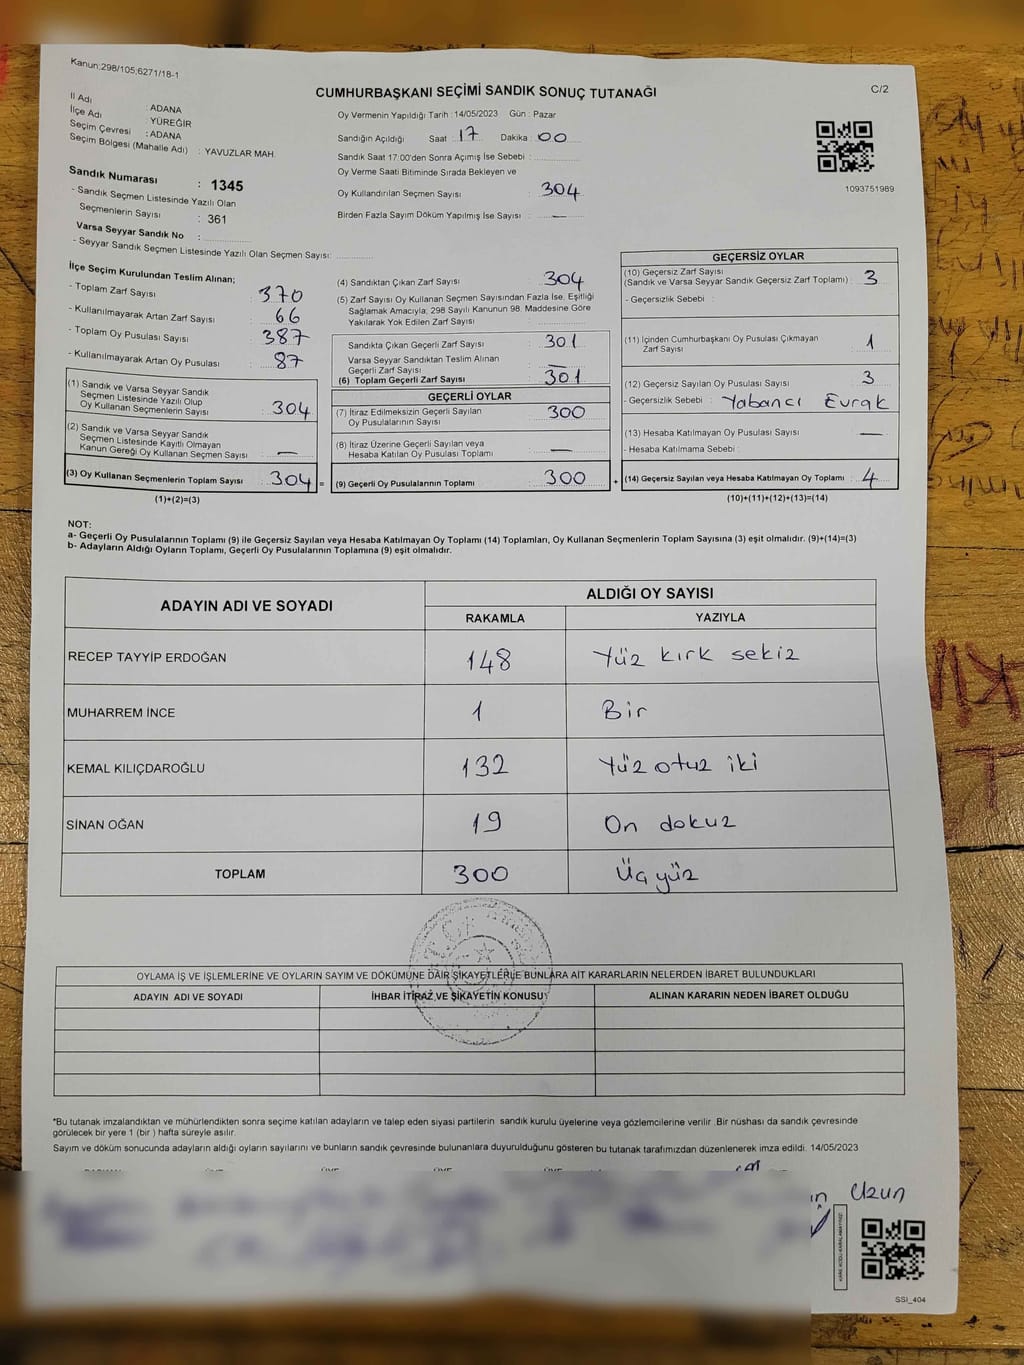 Kanun;298/105;6271/18-1
CUMHURBAŞKANI SEÇİMİ SANDIK SONUÇ TUTANAĞI
C/2
İl Adı : ADANA
İlçe Adı : YÜREĞİR
Seçim Çevresi : ADANA
Seçim Bölgesi (Mahalle Adı) : YAVUZLAR MAH.
Oy Vermenin Yapıldığı Tarih : 14/05/2023 Gün : Pazar
Sandığın Açıldığı Saat 17 Dakika 00
Sandık Saat 17:00'den Sonra Açımış İse Sebebi :
Oy Verme Saati Bitiminde Sırada Bekleyen ve
Oy Kullandırılan Seçmen Sayısı 304
Birden Fazla Sayım Döküm Yapılmış İse Sayısı —
1093751989
Sandık Numarası : 1345
- Sandık Seçmen Listesinde Yazılı Olan
Seçmenlerin Sayısı : 361
Varsa Seyyar Sandık No :
- Seyyar Sandık Seçmen Listesinde Yazılı Olan Seçmen Sayısı:
İlçe Seçim Kurulundan Teslim Alınan;
- Toplam Zarf Sayısı : 370
- Kullanılmayarak Artan Zarf Sayısı : 66
- Toplam Oy Pusulası Sayısı : 387
- Kullanılmayarak Artan Oy Pusulası : 87
(1) Sandık ve Varsa Seyyar Sandık
Seçmen Listesinde Yazılı Olup
Oy Kullanan Seçmenlerin Sayısı : 304
(2) Sandık ve Varsa Seyyar Sandık
Seçmen Listesinde Kayıtlı Olmayan
Kanun Gereği Oy Kullanan Seçmen Sayısı : —
(3) Oy Kullanan Seçmenlerin Toplam Sayısı : 304 =
(1)+(2)=(3)
(4) Sandıktan Çıkan Zarf Sayısı 304
(5) Zarf Sayısı Oy Kullanan Seçmen Sayısından Fazla İse, Eşitliği
Sağlamak Amacıyla; 298 Sayılı Kanunun 98. Maddesine Göre
Yakılarak Yok Edilen Zarf Sayısı :
Sandıkta Çıkan Geçerli Zarf Sayısı : 301
Varsa Seyyar Sandıktan Teslim Alınan
Geçerli Zarf Sayısı : —
(6) Toplam Geçerli Zarf Sayısı : 301
GEÇERLİ OYLAR
(7) İtiraz Edilmeksizin Geçerli Sayılan
Oy Pusulalarının Sayısı : 300
(8) İtiraz Üzerine Geçerli Sayılan veya
Hesaba Katılan Oy Pusulası Toplamı : —
(9) Geçerli Oy Pusulalarının Toplamı : 300 +
GEÇERSİZ OYLAR
(10) Geçersiz Zarf Sayısı
(Sandık ve Varsa Seyyar Sandık Geçersiz Zarf Toplamı) : 3
- Geçersizlik Sebebi :
(11) İçinden Cumhurbaşkanı Oy Pusulası Çıkmayan
Zarf Sayısı : 1
(12) Geçersiz Sayılan Oy Pusulası Sayısı : 3
- Geçersizlik Sebebi : Yabancı Evrak
(13) Hesaba Katılmayan Oy Pusulası Sayısı : —
- Hesaba Katılmama Sebebi :
(14) Geçersiz Sayılan veya Hesaba Katılmayan Oy Toplamı : 4
(10)+(11)+(12)+(13)=(14)
NOT:
a- Geçerli Oy Pusulalarının Toplamı (9) ile Geçersiz Sayılan veya Hesaba Katılmayan Oy Toplamı (14) Toplamları, Oy Kullanan Seçmenlerin Toplam Sayısına (3) eşit olmalıdır. (9)+(14)=(3)
b- Adayların Aldığı Oyların Toplamı, Geçerli Oy Pusulalarının Toplamına (9) eşit olmalıdır.
ADAYIN ADI VE SOYADI ALDIĞI OY SAYISI
RAKAMLA YAZIYLA
RECEP TAYYİP ERDOĞAN 148 Yüz kırk sekiz
MUHARREM İNCE 1 Bir
KEMAL KILIÇDAROĞLU 132 Yüz otuz iki
SİNAN OĞAN 19 On dokuz
TOPLAM 300 Üç yüz
OYLAMA İŞ VE İŞLEMLERİNE VE OYLARIN SAYIM VE DÖKÜMÜNE DAİR ŞİKAYETLERLE BUNLARA AİT KARARLARIN NELERDEN İBARET BULUNDUKLARI
ADAYIN ADI VE SOYADI İHBAR İTİRAZ VE ŞİKAYETİN KONUSU ALINAN KARARIN NEDEN İBARET OLDUĞU
*Bu tutanak imzalandıktan ve mühürlendikten sonra seçime katılan adayların ve talep eden siyasi partilerin sandık kurulu üyelerine veya gözlemcilerine verilir. Bir nüshası da sandık çevresinde
görülecek bir yere 1 (bir) hafta süreyle asılır.
Sayım ve döküm sonucunda adayların aldığı oyların sayılarını ve bunların sandık çevresinde bulunanlara duyurulduğunu gösteren bu tutanak tarafımızdan düzenlenerek imza edildi. 14/05/2023
Uzun
SSI_404